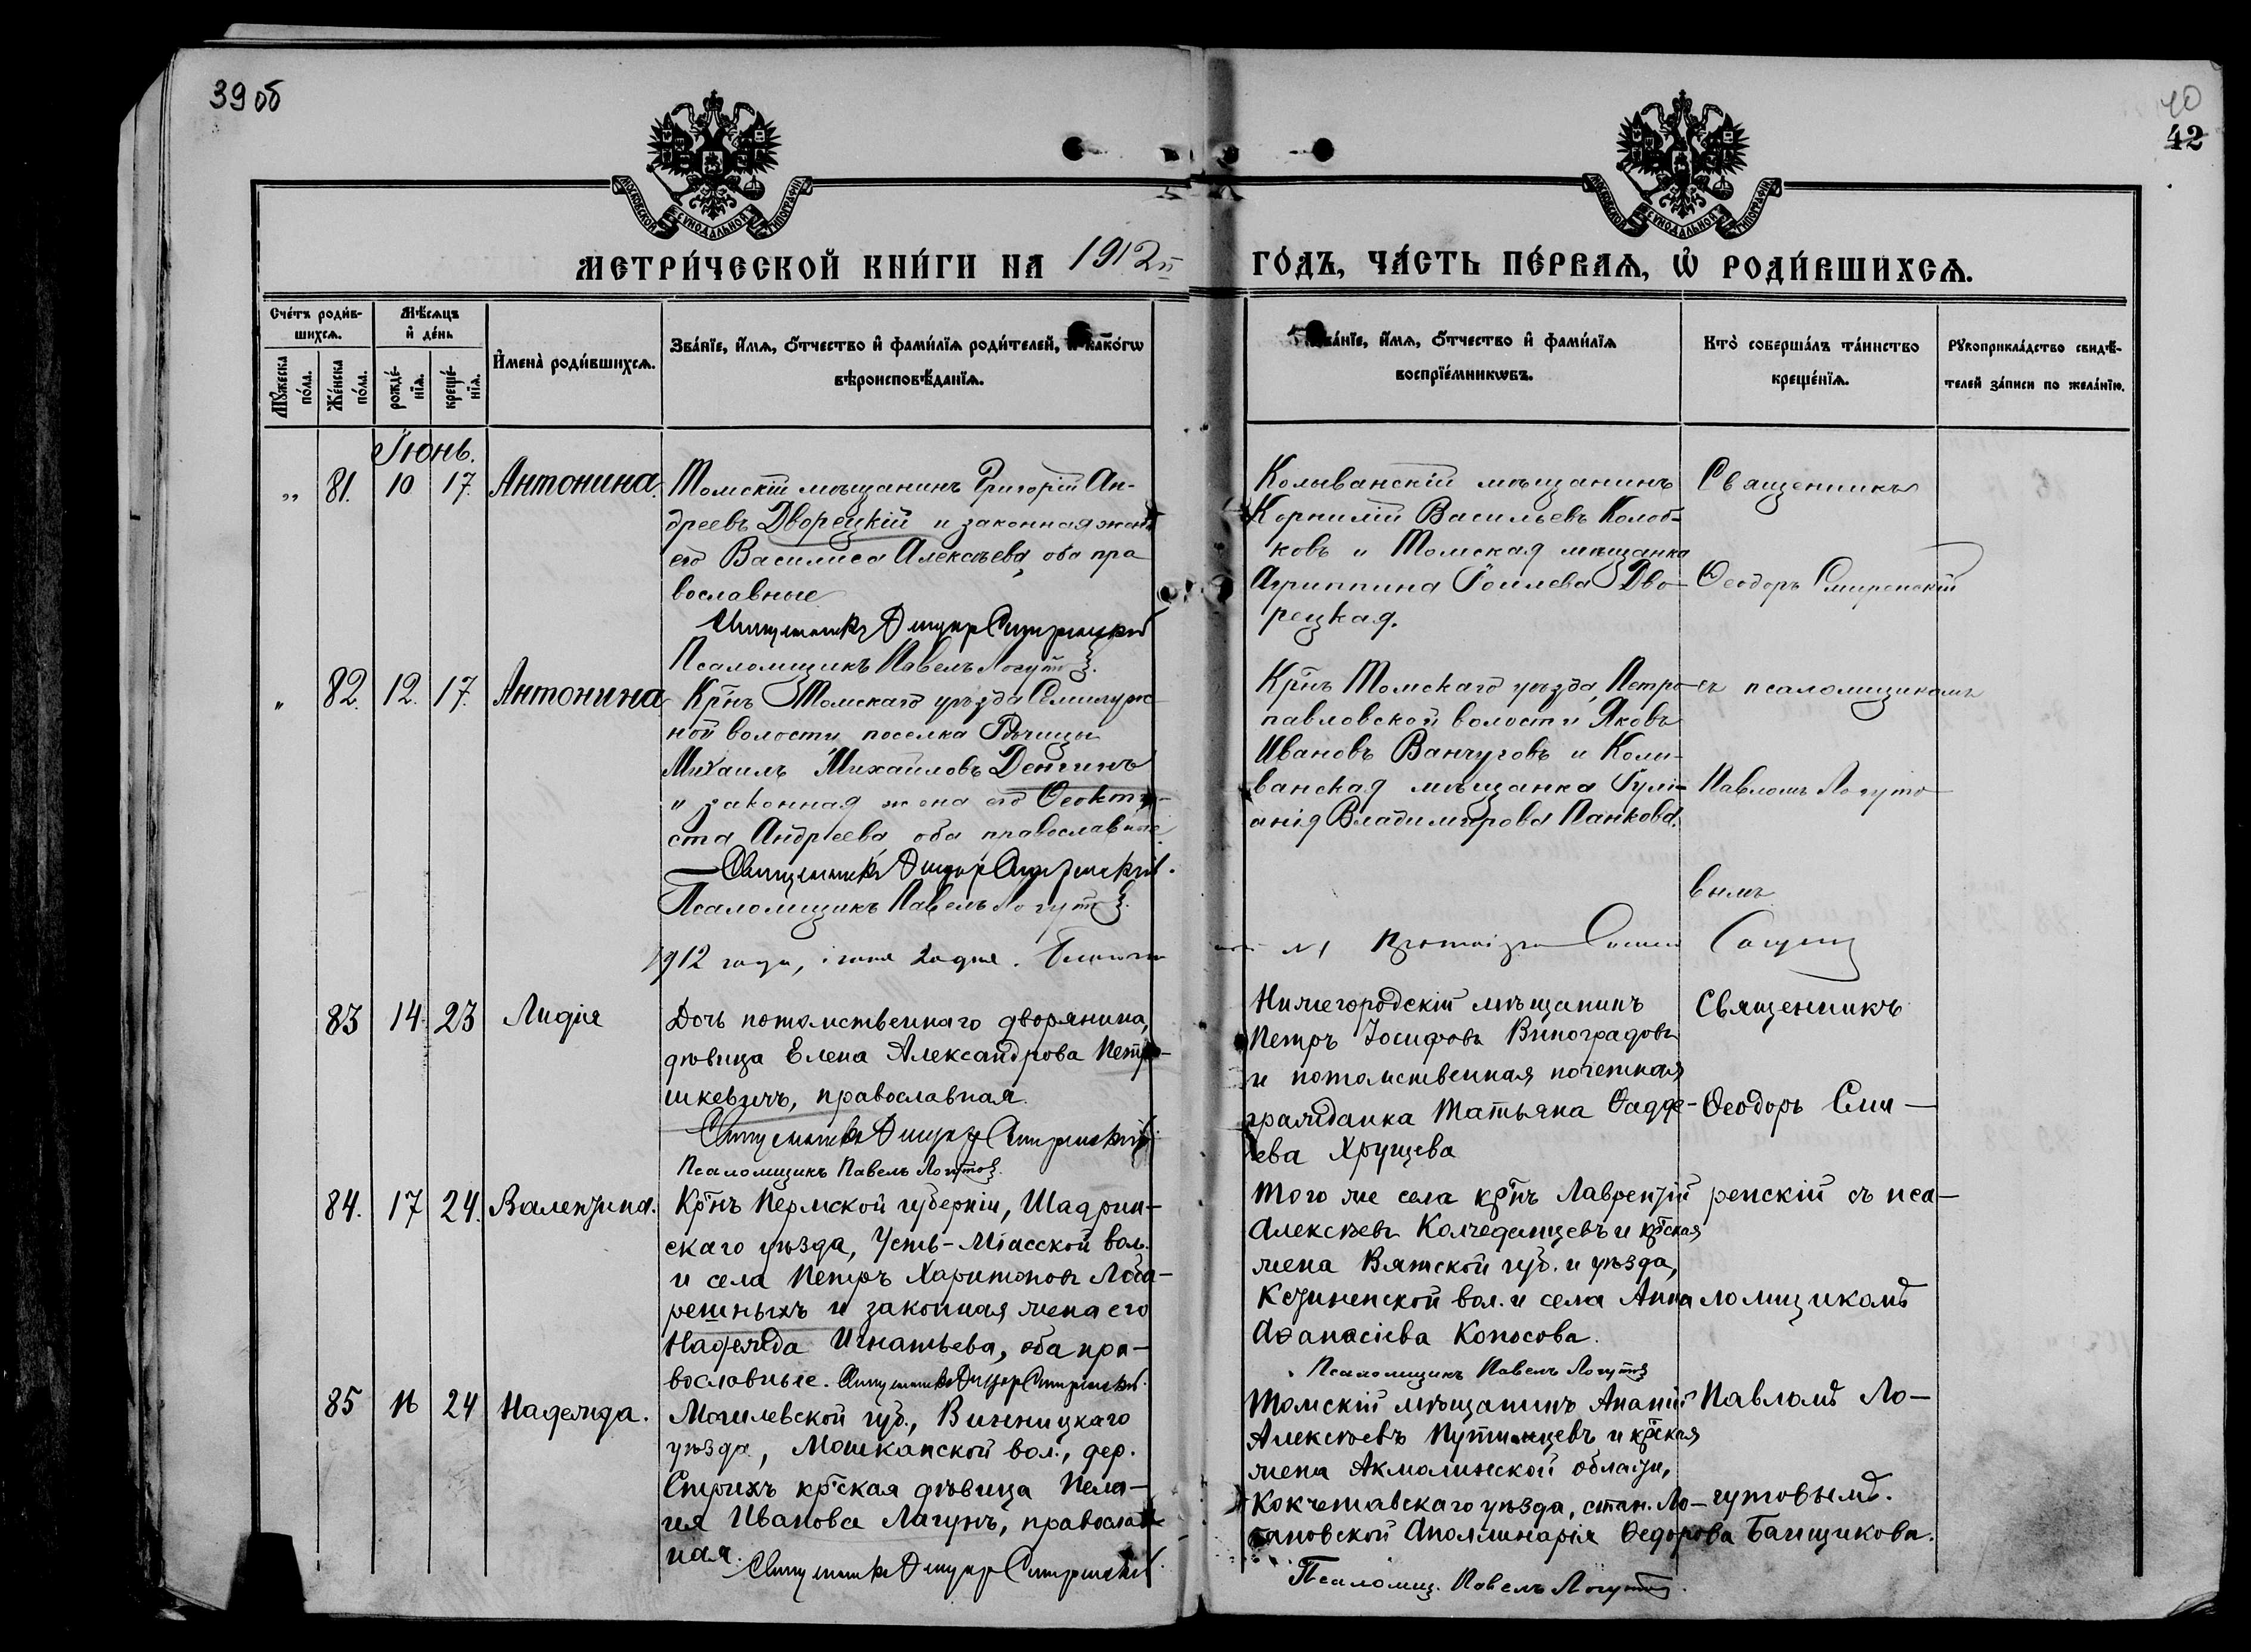 39 об
40
42
МОСКОВСКОЙ СѴНОДАЛЬНОЙ ТИПОГРАФІИ
МОСКОВСКОЙ СѴНОДАЛЬНОЙ ТИПОГРАФІИ
МЕТРИ́ЧЕСКОЙ КНИ́ГИ НА 1912й ГО́ДЪ, ЧА́СТЬ ПЕ́РВАѦ, Ѡ҆ РОДИ́ВШИХСѦ.
Сче́тъ роди́в-
шихсѧ.
Мꙋ́жеска по́ла.
Же́нска по́ла.
Мѣ́сѧцъ
и҆ де́нь
рожде́-
нїѧ.
креще́-
нїѧ.
И҆мена̀ роди́вшихсѧ.
Зва́нїе, и҆́мѧ, ѻ҆́тчество и҆ фами́лїѧ роди́телей, и҆ како́гѡ
вѣроисповѣ́данїѧ.
Зва́нїе, и҆́мѧ, ѻ҆́тчество и҆ фами́лїѧ
воспрїе́мникѡвъ.
Кто̀ соверша́лъ та́инство
креще́нїѧ.
Рꙋкоприкла́дство свидѣ́-
телей за́писи по жела́нїю.
Іюнь.
„ 81. 10 17. Антонина.
Томскій мѣщанинъ Григорій Ан-
дреевъ Дворецкій и законная жена
его Василиса Алексѣева, оба пра
вославные
Священникъ Ѳеодоръ Смиренскій
Псаломщикъ Павелъ Логутов.
Колыванскій мѣщанинъ
Корнилій Васильевъ Колоб-
ковъ и Томская мѣщанка
Агриппина Іоилева Дво-
рецкая.
Священникъ
Ѳеодоръ Смиренскій
„ 82. 12. 17. Антонина
Кр̃нъ Томскаго уѣзда Семилуж-
ной волости, поселка Рѣчицы
Михаилъ Михайловъ Денгинъ
и законная жена его Ѳеокти-
ста Андреева, оба православные
Священникъ Ѳеодоръ Смиренскій.
Псаломщикъ Павелъ Логутов.
Кр̃нъ Томскаго уѣзда, Петро-
павловской волости Яковъ
Ивановъ Ванчуговъ и Колы-
ванская мѣщанка Іулі-
анія Владимірова Панкова.
съ псаломщикомъ
Павломъ Логуто-
вымъ
1912 года, іюня 20 дня.
83 14 23 Лидія
Дочь потомственнаго дворянина,
дѣвица Елена Александрова Петра-
шкевичъ, православная.
Священникъ Ѳеодоръ Смиренскій
Псаломщикъ Павелъ Логутов.
Нижегородскій мѣщанинъ
Петръ Іосифовъ Виноградовъ
и потомственная почетная
гражданка Татьяна Ѳадде-
ева Хрущева
Священникъ
Ѳеодоръ Сми-
84. 17 24. Валентина.
Кр̃нъ Пермской губерніи, Шадрин-
скаго уѣзда, Усть-Міасской вол.
и села Петръ Харитоновъ Лоба-
решныхъ и законная жена его
Надежда Игнатьева, оба пра-
вославные. Священникъ Ѳеодоръ Смиренскій.
Того же села кр̃нъ Лаврентій
Алексѣевъ Колчеданцевъ и кр̃ская
жена Вятской губ. и уѣзда,
вол. и села Анна
Аѳанасіева Копосова.
Псаломщикъ Павелъ Логутов
ренскій съ пса-
ломщикомъ
85 16 24 Надежда.
Могилевской губ., Винницкаго
уѣзда, Мошканской вол., дер.
Стрихъ кр̃ская дѣвица Пела-
гія Иванова Лагунъ, православ
ная. Священникъ Ѳеодоръ Смиренскій.
Томскій мѣщанинъ Ананій
Алексѣевъ Путинцевъ и кр̃ская
жена Акмолинской области,
Кокчетавскаго уѣзда, стан. Ло-
бановской Аполлинарія Ѳедорова Банщикова.
Псаломщ. Павелъ Логутов.
Павломъ Ло-
гутовымъ.